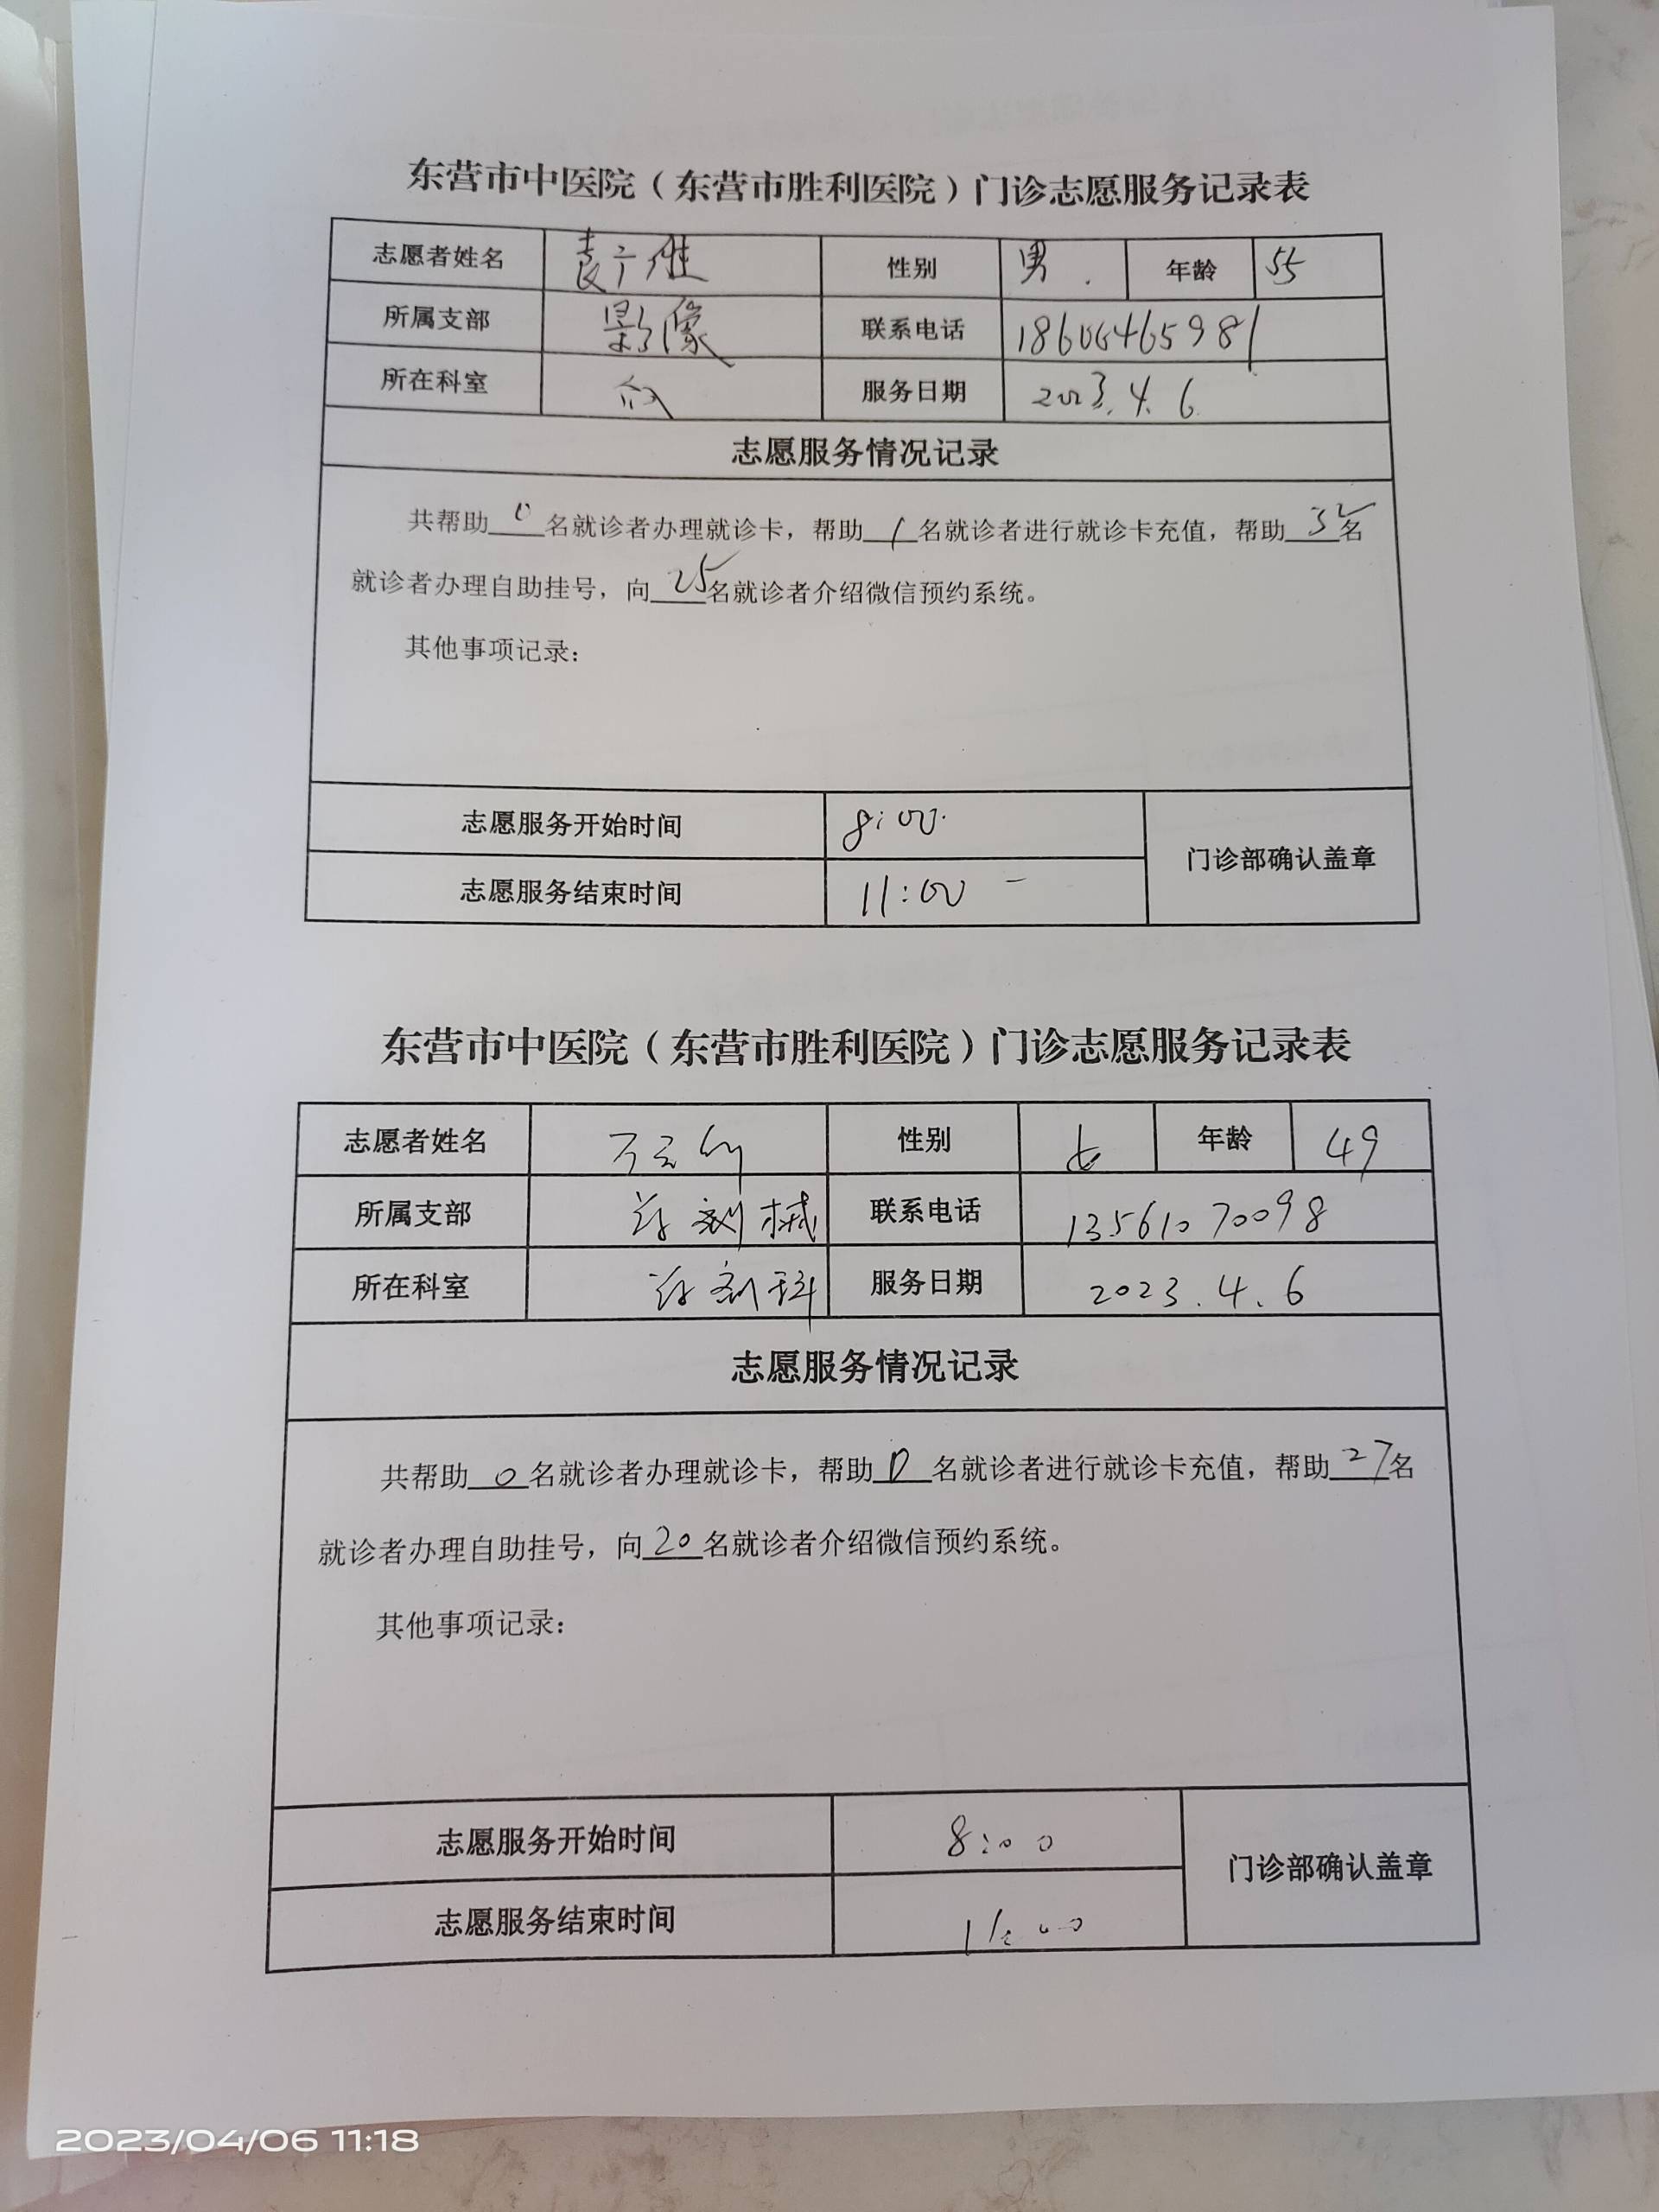 东营市中医院（东营市胜利医院）门诊志愿服务记录表
志愿者姓名 袁广胜 性别 男. 年龄 55
所属支部 影像 联系电话 18606465981
所在科室 服务日期 2023.4.6
志愿服务情况记录
共帮助0名就诊者办理就诊卡，帮助1名就诊者进行就诊卡充值，帮助名
就诊者办理自助挂号，向25名就诊者介绍微信预约系统。
其他事项记录：
志愿服务开始时间 8:00
门诊部确认盖章
志愿服务结束时间 11:00
东营市中医院（东营市胜利医院）门诊志愿服务记录表
志愿者姓名 性别 女 年龄 49
所属支部 药剂械 联系电话 13561070098
所在科室 药剂科 服务日期 2023.4.6
志愿服务情况记录
共帮助0名就诊者办理就诊卡，帮助0名就诊者进行就诊卡充值，帮助27名
就诊者办理自助挂号，向20名就诊者介绍微信预约系统。
其他事项记录：
志愿服务开始时间 8:00
门诊部确认盖章
志愿服务结束时间 11:00
2023/04/06 11:18